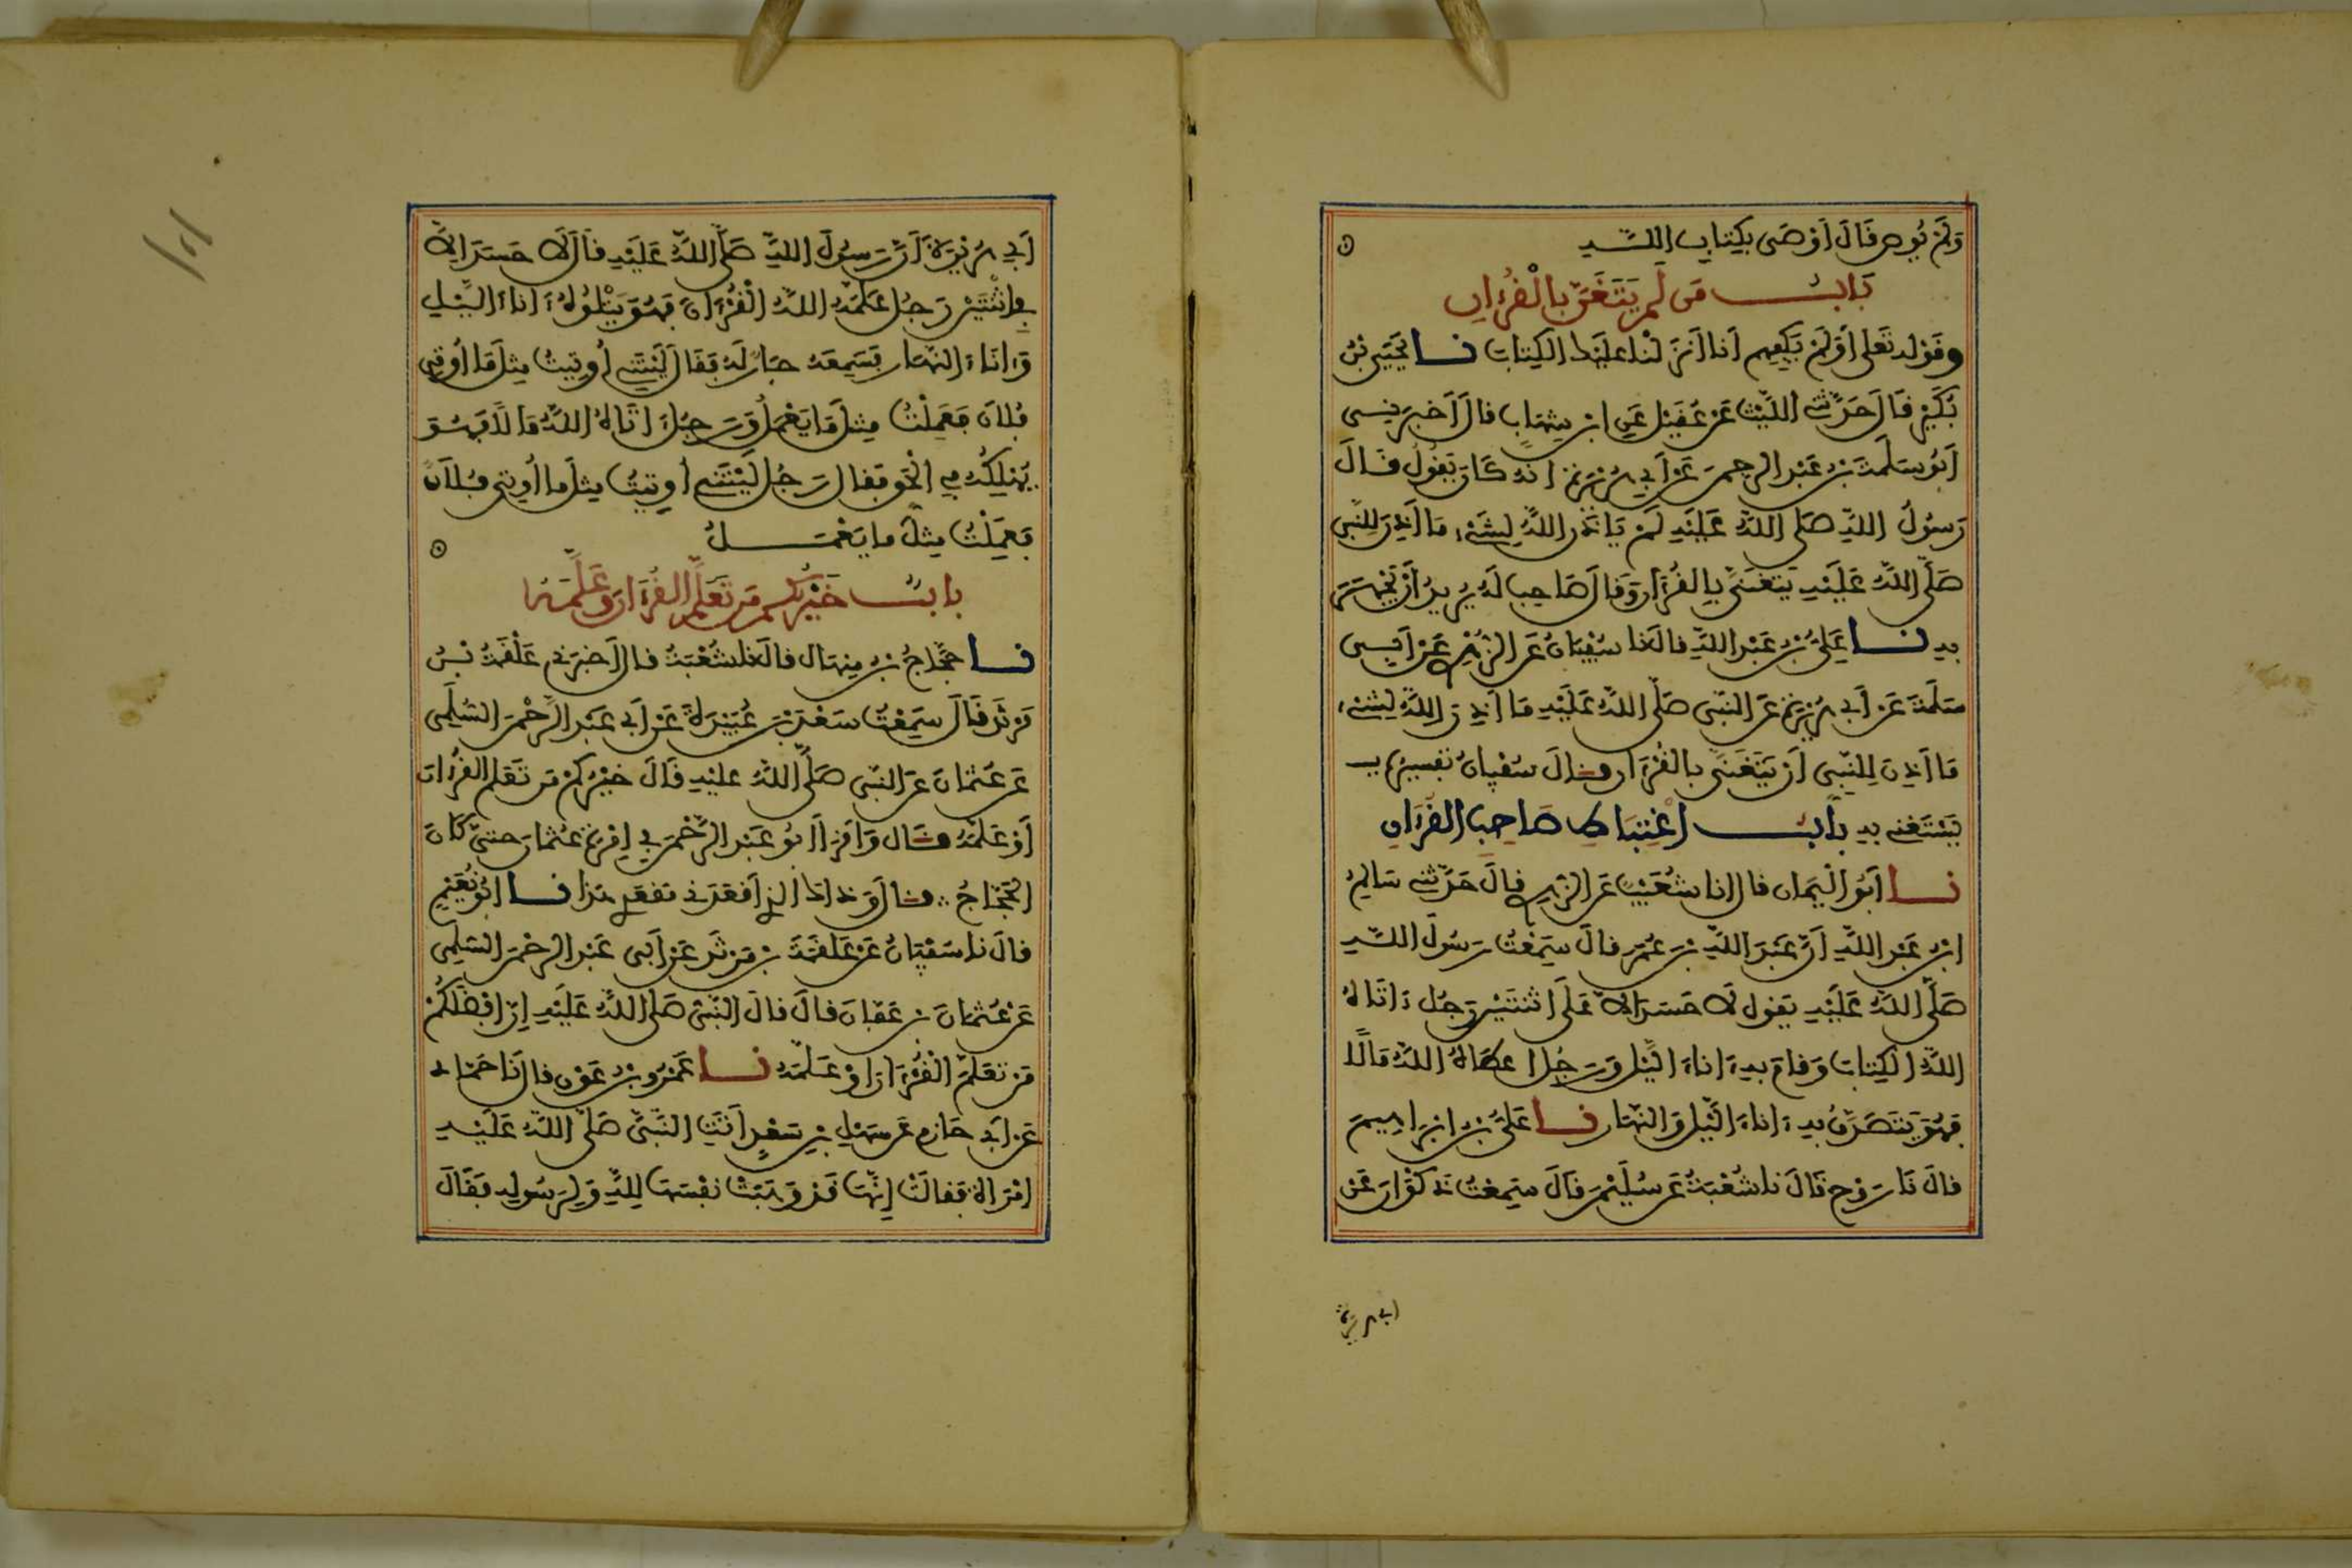 وَلَمْ يُوصِ قَالَ أَوْصَى بِكِتَابِ اللَّهِ
بَابُ مَن لَّمْ يَتَغَنَّ بِالْقُرْءَانِ
وقَوْله تَعَلى أَوَلَمْ يَكْفِهِم أَنا أَنزَلْنا عَلَيْكَ الكِتَابَ نا يَحْيَى بْنُ
بُكَيْرٍ قَالَ حَدَّثَنِي اللَّيْثُ عَنْ عُقَيْلٍ عَنِ ابْنِ شِهَابٍ قالَ أَخبَرَنِي
أَبُو سَلَمَةَ بْنُ عَبْدِ الرحمنِ عَنْ أَبِي هُرَيْرَةَ أنهُ كَانَ يَقُولُ قَالَ
رَسُولُ اللهِ صَلى اللهُ عَلَيْهِ لَمْ يَأْذَنِ اللهُ لِشَيْءٍ مَا أَذِنَ لِلنَّبِي
صَلَّى اللهُ عَلَيْهِ يَتَغَنَّى بِالقُرْءَانِ وَقَالَ صَاحِبٌ لَهُ يُرِيدُ أَنْ يَجْهَرَ
بِهِ نا عَلِيُّ بْنُ عَبْدِ اللهِ قالَ نا سُفْيَانُ عَنِ الزُّهْرِي عَنْ أَبِي
سَلَمَةَ عَنْ أَبِي هُرَيْرَةَ عَنِ النَّبِي صَلَّى اللهُ عَلَيْهِ مَا أَذِنَ اللهُ لِشَيْءٍ
مَا أَذِنَ لِلنَّبِي أَنْ يَتَغَنَّى بِالقُرْءَانِ وقالَ سُفْيانُ تَفْسِيرُهُ
يَسْتَغْنِي بِهِ بَابُ اغْتِبَاطِ صَاحِبِ القُرْءَانِ
نا أَبُو الْيَمَانِ قالَ انا شُعَيْبٌ عَنِ الزُّهْرِي قالَ حَدَّثَنِي سَالِمُ
ابْنُ عَبْدِ اللهِ أَنَّ عَبْدَ اللهِ بْنَ عُمَرَ قالَ سَمِعْتُ رَسُولَ اللهِ
صَلَّى اللهُ عَلَيْهِ يَقول لَا حَسَدَ إلاَّ عَلَى اثْنَتَيْنِ رَجُلٌ ءَاتَاهُ
اللهُ الكِتَابَ وَقَامَ بِهِ ءَانَاءَ الَّيْلِ وَرَجُلٌ أعطَاهُ اللهُ مَالًا
فَهُوَ يَتَصَدَّقُ بِهِ ءَانَاءَ الَّيْلِ وَالنَّهَارِ نا عَلِيُّ بْنُ إبْرَاهِيمَ
قالَ نَا رَوْحٌ قَالَ نا شُعْبَةُ عَنْ سُلَيْمَنَ قَالَ سَمِعْتُ ذَكْوَانَ عَنْ
ابي هريرة
أَبِي هُرَيْرَةَ أَنَّ رَسُولَ اللهِ صَلَّى اللهُ عَلَيْهِ قَالَ لَا حَسَدَ إلاَّ
فِي اثْنَتَيْنِ رَجُلٌ عَلَّمَهُ اللهُ الْقُرْءَانَ فَهُوَ يَتْلُوهُ ءَانَاءَ اللَّيْلِ
وَءانَاءَ النَّهَارِ فَسَمِعَهُ جَارٌ لَهُ فَقَالَ لَيْتَنِي أُوتِيتُ مِثْلَ مَا أُوتِي
فُلانٌ فَعَمِلْتُ مِثْلَ مَا يَعْمَلُ وَرَجُلٌ ءاتَاهُ اللهُ مَالًا فَهُوَ
يُهْلِكُهُ فِي الْحَقِّ فَقَالَ رَجُلٌ لَيْتَنِي أوتِيتُ مِثْلَ ما أُوتِي فُلَانٌ
فَعَمِلْتُ مِثْلَ ما يَعْمَلُ
بابُ خَيْرُكُم مَن تَعَلَّمَ القُرْءَانَ وَعَلَّمَهُ
نا حَجَّاجُ بْنُ مِنهَالٍ قالَ نا شُعْبَةُ قالَ أَخبَرَنِي عَلْقَمَةُ بْنُ
مَرْثَدٍ قَالَ سَمِعْتُ سَعْدَ بْنَ عُبَيْدَةَ عَنْ أَبِي عَبْدِ الرَّحْمَنِ السُّلَمِي
عَنْ عُثْمَانَ عَنِ النَّبِي صَلَّى اللهُ عَلَيْهِ قَالَ خَيْرُكُمْ مَنْ تَعَلَّمَ القُرْءَانَ
أَوْ عَلَّمَهُ وقال وَأَقْرَأَ أَبُو عَبْدِ الرَّحْمَنِ فِي إِمْرَةِ عُثْمَانَ حَتَّى كَانَ
الحَجَّاجُ وقالَ وَذَاكَ الذِي أَقْعَدَنِي مَقْعَدِي هَذَا نا أَبُو نُعَيْمٍ
قالَ نا سُفْيَانُ عَنْ عَلْقَمَةَ بْنِ مَرْثَدٍ عَنْ أَبِي عَبْدِ الرحْمَنِ السُّلَمِي
عَنْ عُثْمَانَ بْنِ عَفَّانَ قَالَ قالَ النَّبِيُّ صَلى اللهُ عَلَيْهِ إنَّ أَفْضَلَكُمْ
مَنْ تَعَلَّمَ الْقُرْءَانَ أَوْ عَلَّمَهُ نا عَمْرُو بْنُ عَوْنٍ قالَ نَا حَمَّادٌ
عَنْ أَبِي حَازِمٍ عَنْ سَهْلِ بْنِ سَعْدٍ أَتَتِ النَّبِيَّ صَلَّى اللهُ عَلَيْهِ
امْرَأَةٌ فَقالَتْ إِنَّهَا قَدْ وَهَبَتْ نَفْسَهَا لِلهِ وَلِرَسُولِهِ فَقَالَ